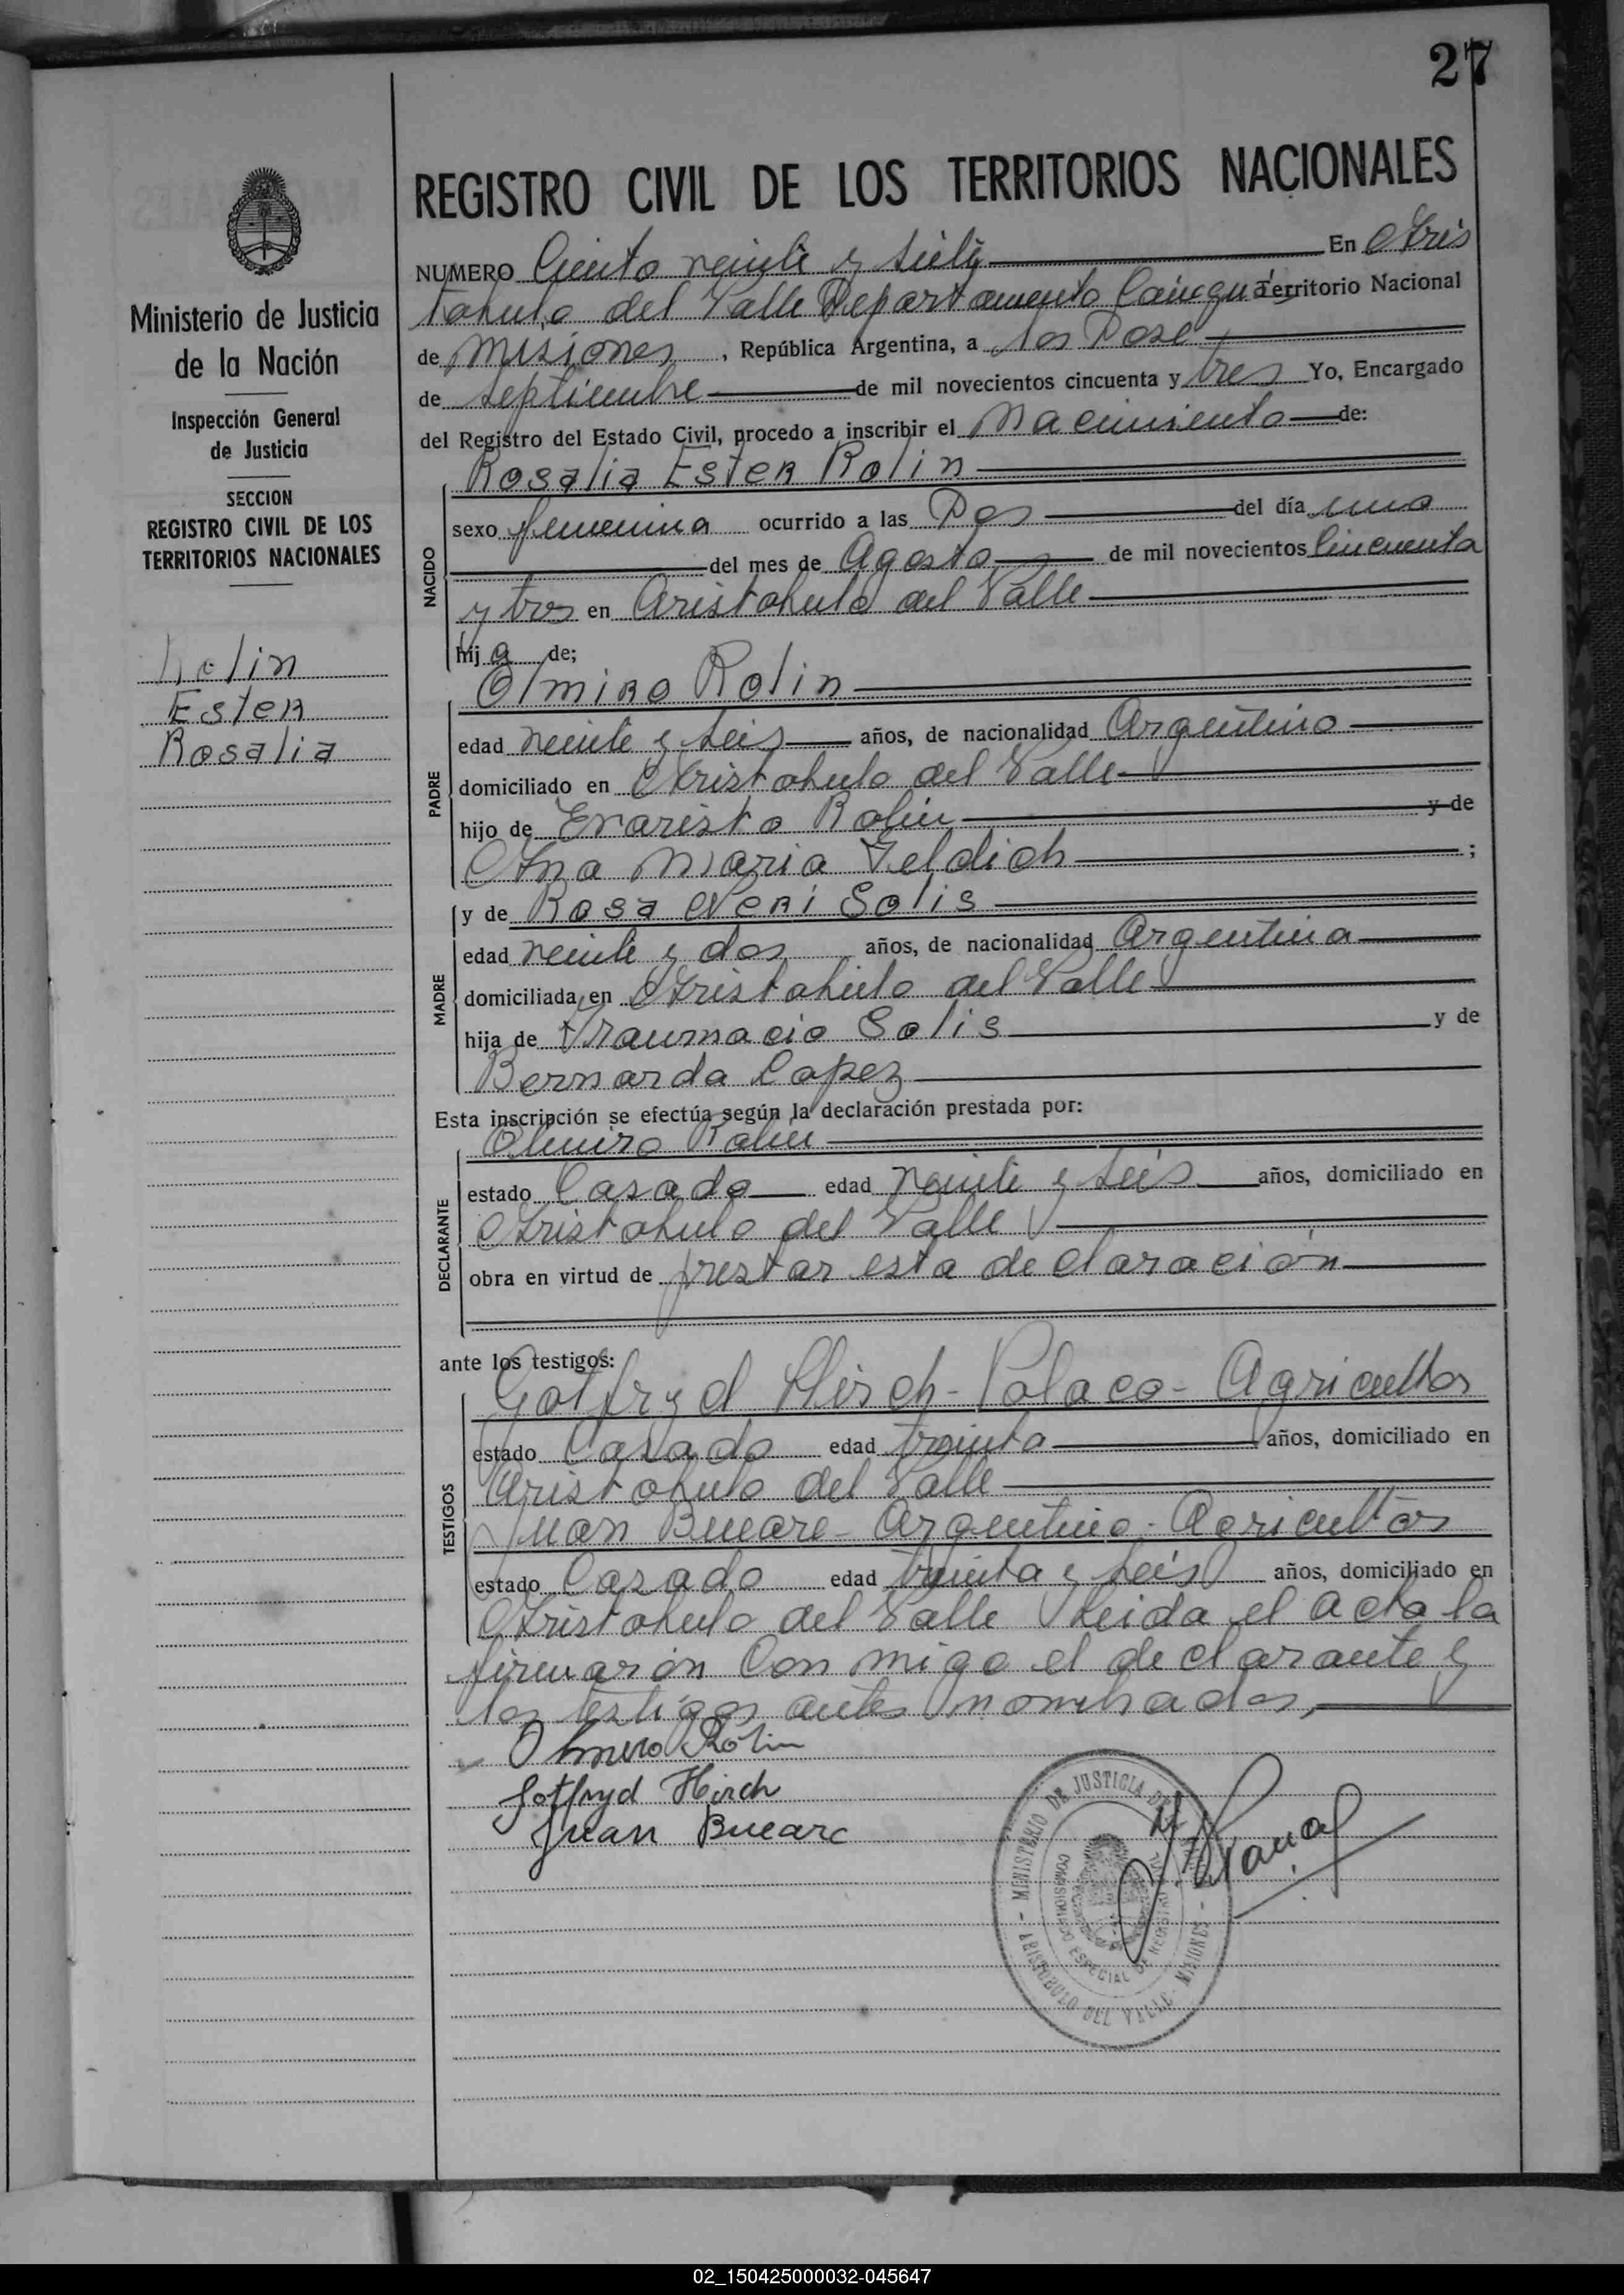 27
REGISTRO CIVIL DE LOS TERRITORIOS NACIONALES
Ministerio de Justicia
de la Nación
Inspección General
de Justicia
SECCION
REGISTRO CIVIL DE LOS
TERRITORIOS NACIONALES
Rolin
Ester
Rosalia
NUMERO Ciento veinte y siete En Aris
tobulo del Valle Departamento Cainguás Territorio Nacional
de Misiones, República Argentina, a los Dose
de septiembre de mil novecientos cincuenta y tres Yo, Encargado
del Registro del Estado Civil, procedo a inscribir el Nacimiento de:
Rosalia Ester Rolin
NACIDO
sexo femenina ocurrido a las Dos del día uno
del mes de Agosto de mil novecientos Cincuenta
y tres en Aristobulo del Valle
hij a de;
PADRE
Olmiro Rolin
edad veinte y seis años, de nacionalidad Argentino
domiciliado en Aristobulo del Valle
hijo de Evaristo Rolin y de
Ana Maria Feldich ;
MADRE
y de Rosa Neri Solis
edad veinte y dos años, de nacionalidad Argentina
domiciliada en Aristobulo del Valle
hija de Traumacio Solis y de
Bernarda Lopez
Esta inscripción se efectúa según la declaración prestada por:
DECLARANTE
Olmiro Rolin
estado Casado edad veinte y seis años, domiciliado en
Aristobulo del Valle
obra en virtud de prestar esta declaración
ante los testigos:
TESTIGOS
Gotfryd Hirch - Polaco - Agricultor
estado Casado edad treinta años, domiciliado en
Aristobulo del Valle
Juan Bueare - Argentino - Agricultor
estado Casado edad treinta y seis años, domiciliado en
Aristobulo del Valle Leida el acta la
firmarón Con migo el declarante y
los testigos antes nombrados,
Olmiro Rolin
Gotfryd Hirch
Juan Bueare
MINISTERIO DE JUSTICIA DE
ARISTOBULO DEL VALLE - MISIONES
02_150425000032-045647